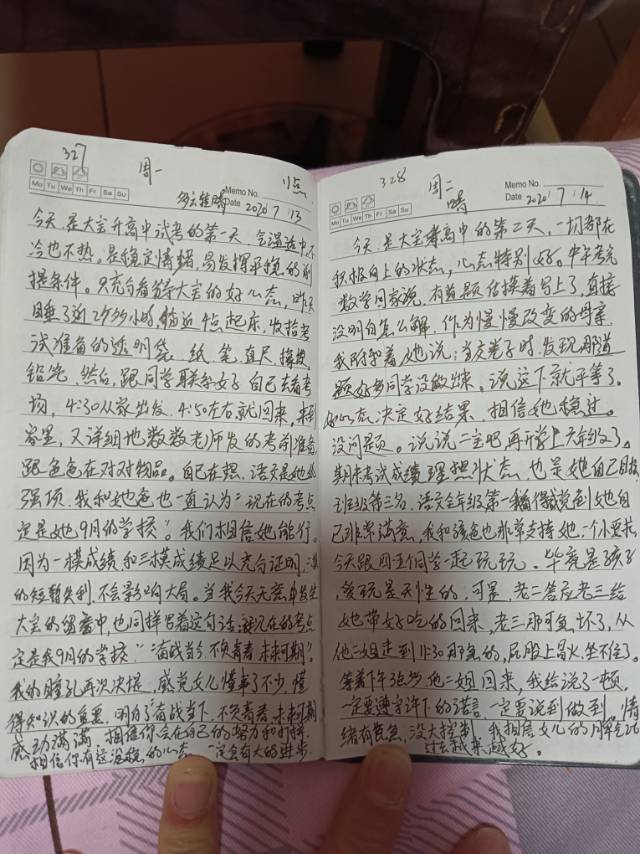 327
周一
Memo No.
Mo Tu We Th Fr Sa Su
多云转晴
Date 2020 7 13
今天是大宝升高中试考的第一天,气温适中不
冷也不热,是稳定情绪,易发挥平稳的前
提条件。
睡了近2个多小时,临近4点起床,收拾考
试准备的透明袋、纸、笔、直尺、橡皮、
铅笔,然后,跟同学联系好自己去看考
场,4:30从家出发,4:50左右就回来,来到
客室,又详细地数数老师发的考前准备
跟爸爸在对对物品。自己在想,语文是她的
强项,我和她爸也一直认为"现在的考点
定是她9月的学校"。我们相信她能行。
因为一模成绩和三模成绩足以充分证明,二模
的短暂失利,不会影响大局。当我今天无意中
大宝的留言中,也同样写着这句话:"现在的考点
定是我9月的学校""奋战当今,不负青春,未来可期"。
我的瞳孔再次决堤,感觉女儿懂事了不少,懂
得知识的重要,明白了奋战当下,不负青春,未来可期
感动满满,相信你会在自己的努力和
相信你有这没稳的心态,一定会有大的进步
328
周二
晴
Memo No.
Mo Tu We Th Fr Sa Su
Date 2020 7 14
今天是大宝考高中的第二天,一切都在
积极向上的状态,心态特别好。中午考完
数学回家说,有道题估摸着写上了,直接
没明白怎么解,作为慢慢改变的母亲
我附和着她说:当交卷子时,发现那道
题好多同学没做出来。说这下就平等了。
好心态,决定好结果,相信她稳过。
没问题。说说二宝吧,再开学上六年级了。
期末考试成绩理想状态,也是她自己
班级第三名,语文全年级第一
已非常满意,我和爸也非常支持她一个小要求
今天跟四五个同学一起玩玩。毕竟是孩子
贪玩是天性的,可是,老二答应老三给
她带好吃的回来,老三那可急坏了,从
他二姐走到11:30那急的,屁股上冒火,坐不住了。
等着下午张罗他二姐回来,我给说了一顿,
一定要遵守许下的诺言,一定要说到做到,情
绪有些急,没大控制,我相信女儿的
过去,越来越好。